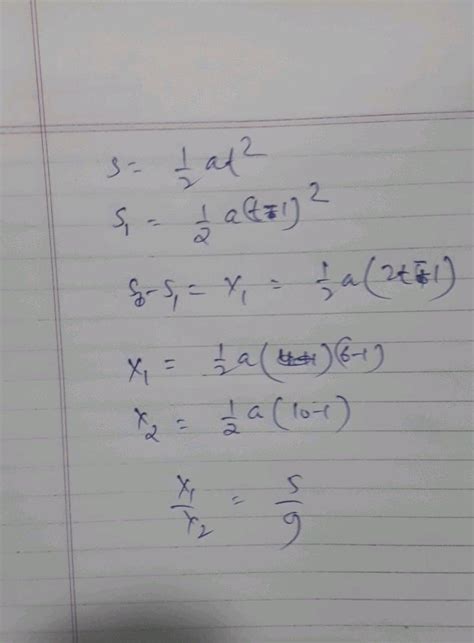 s = 1/2 at²
S₁ = 1/2 a(t-1)²
S-S₁ = x₁ = 1/2 a(2t-1)
x₁ = 1/2 a (6-1)
x₂ = 1/2 a (10-1)
x₁/x₂ = 5/9